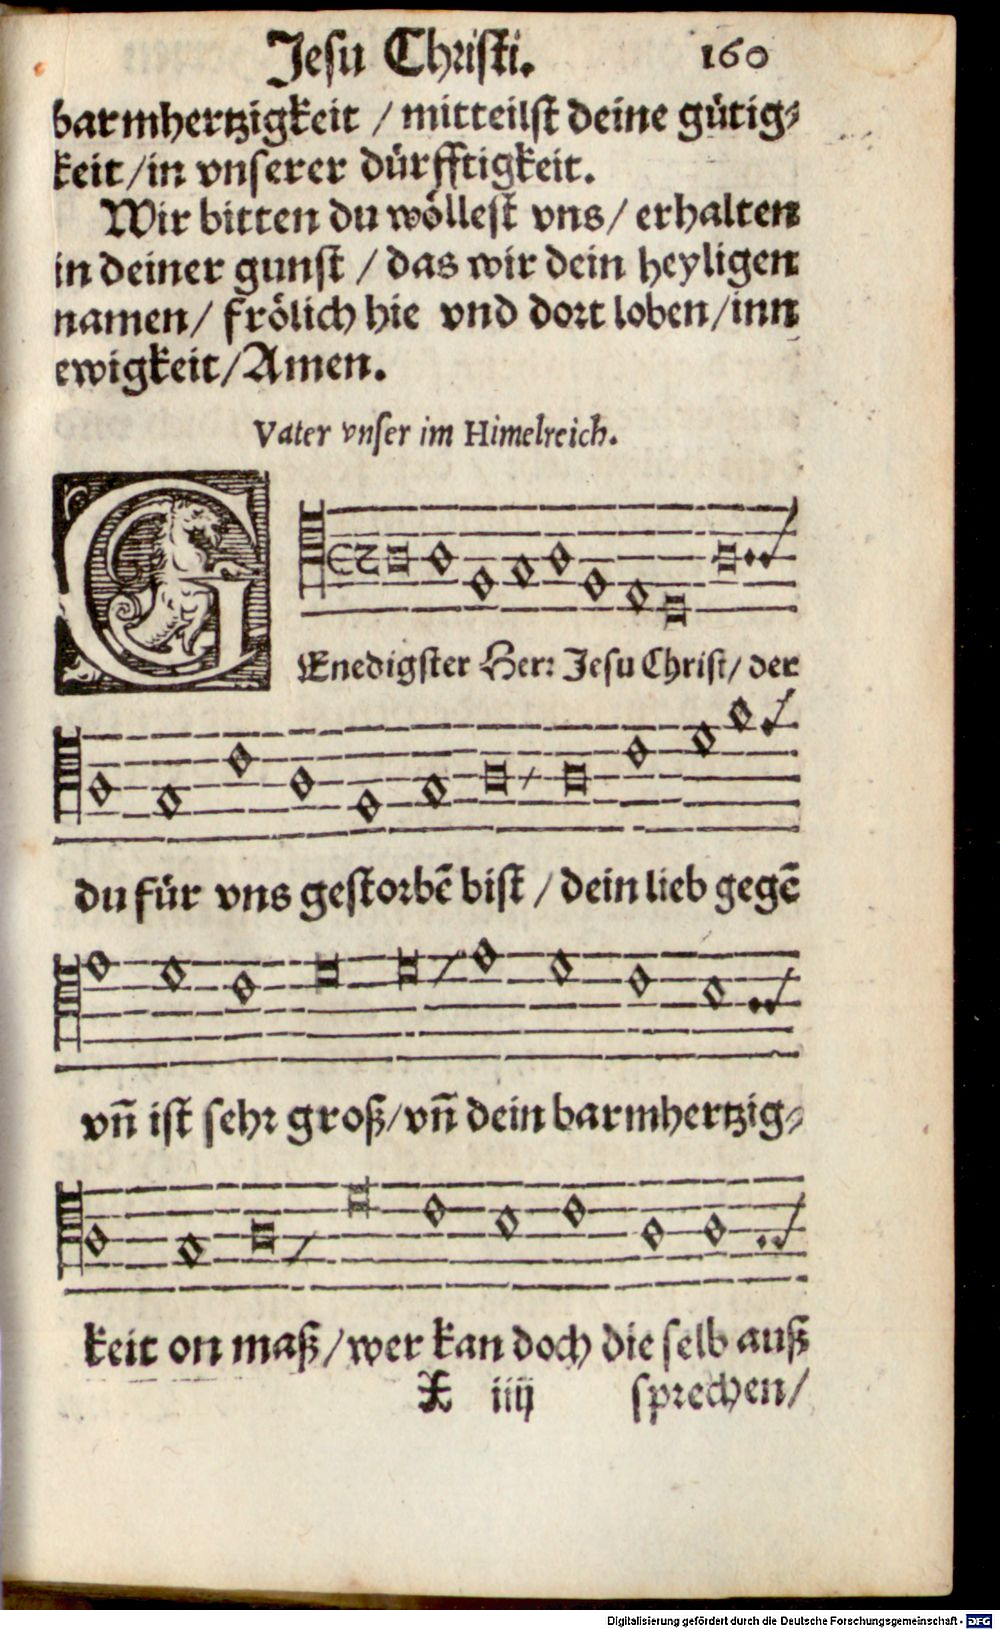 Jesu Christi. 160
barmhertzigkeit / mitteilst deine gütig⸗
keit / in vnserer dürfftigkeit.
Wir bitten du wöllest vns / erhalten
in deiner gunst / das wir dein heyligen
namen / frölich hie vnd dort loben / inn
ewigkeit / Amen.
Vater vnser im Himelreich.
GEnedigster Herr Jesu Christ / der
du für vns gestorbē bist / dein lieb gegē
vñ ist sehr groß / vñ dein barmhertzig⸗
keit on maß / wer kan doch die selb auß
X iiij sprechen /
Digitalisierung gefördert durch die Deutsche Forschungsgemeinschaft - DFG